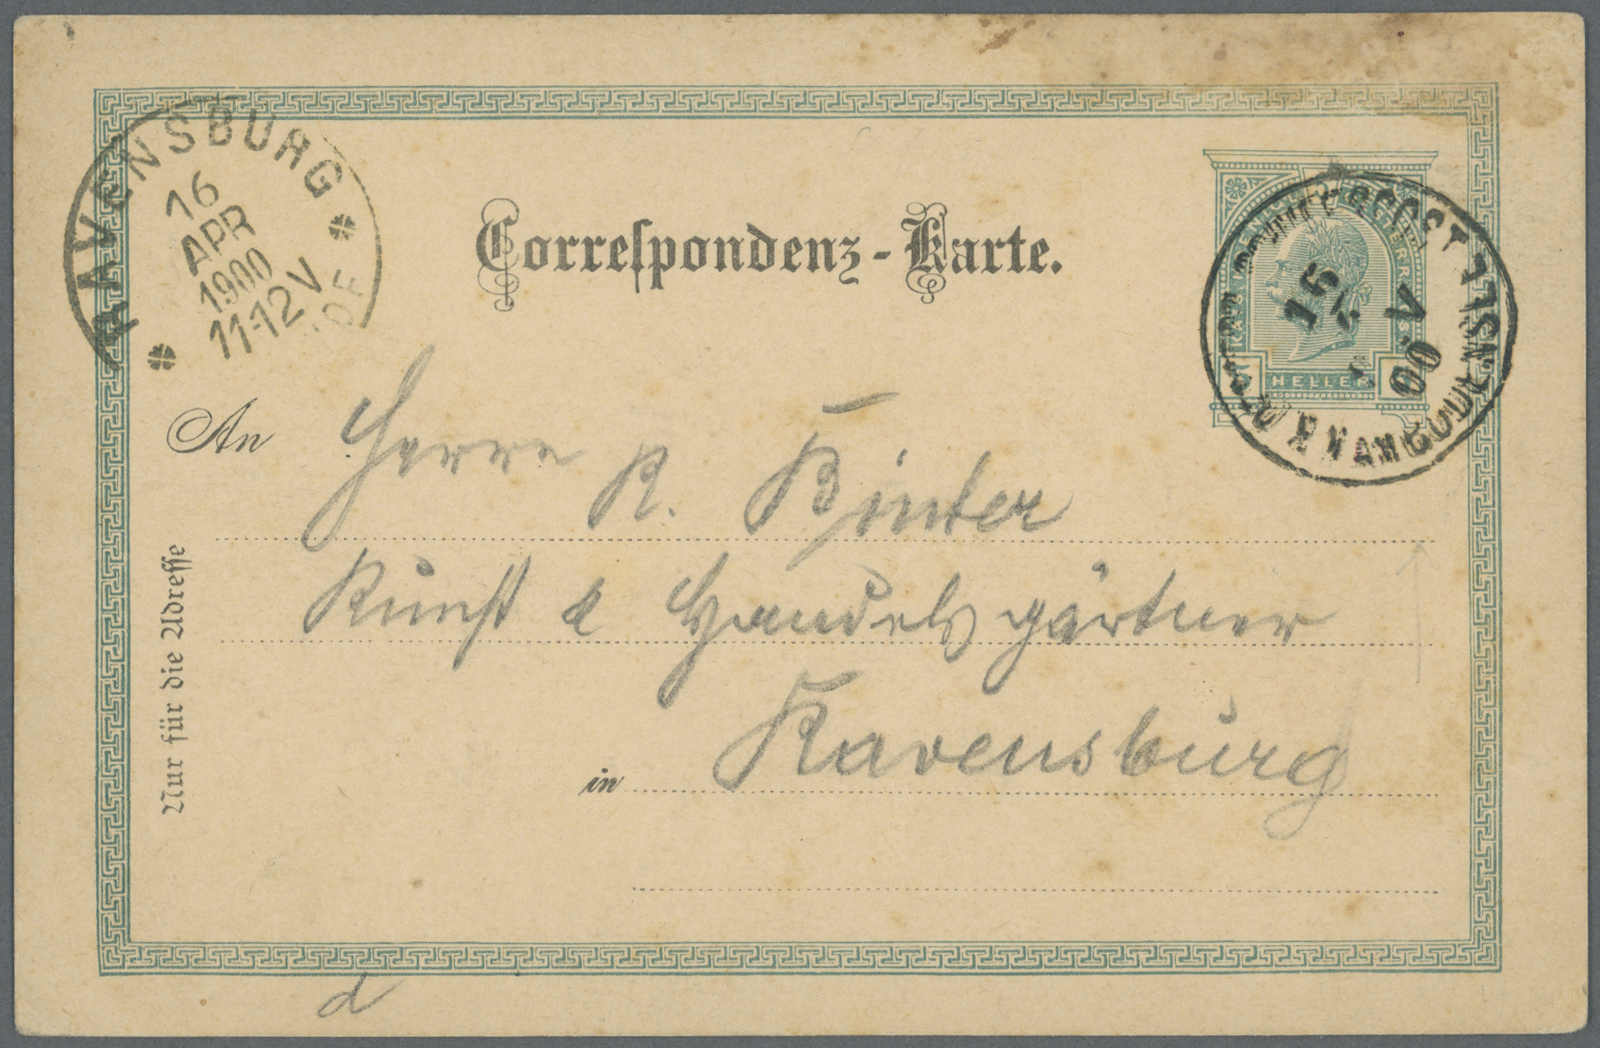 RAVENSBURG
16
APR
1900
11-12V
Correspondenz-Karte.
HELLER
15
V
00
An Herrn R. Binter
Kunst & Handelsgärtner
in Ravensburg
Nur für die Adresse
d